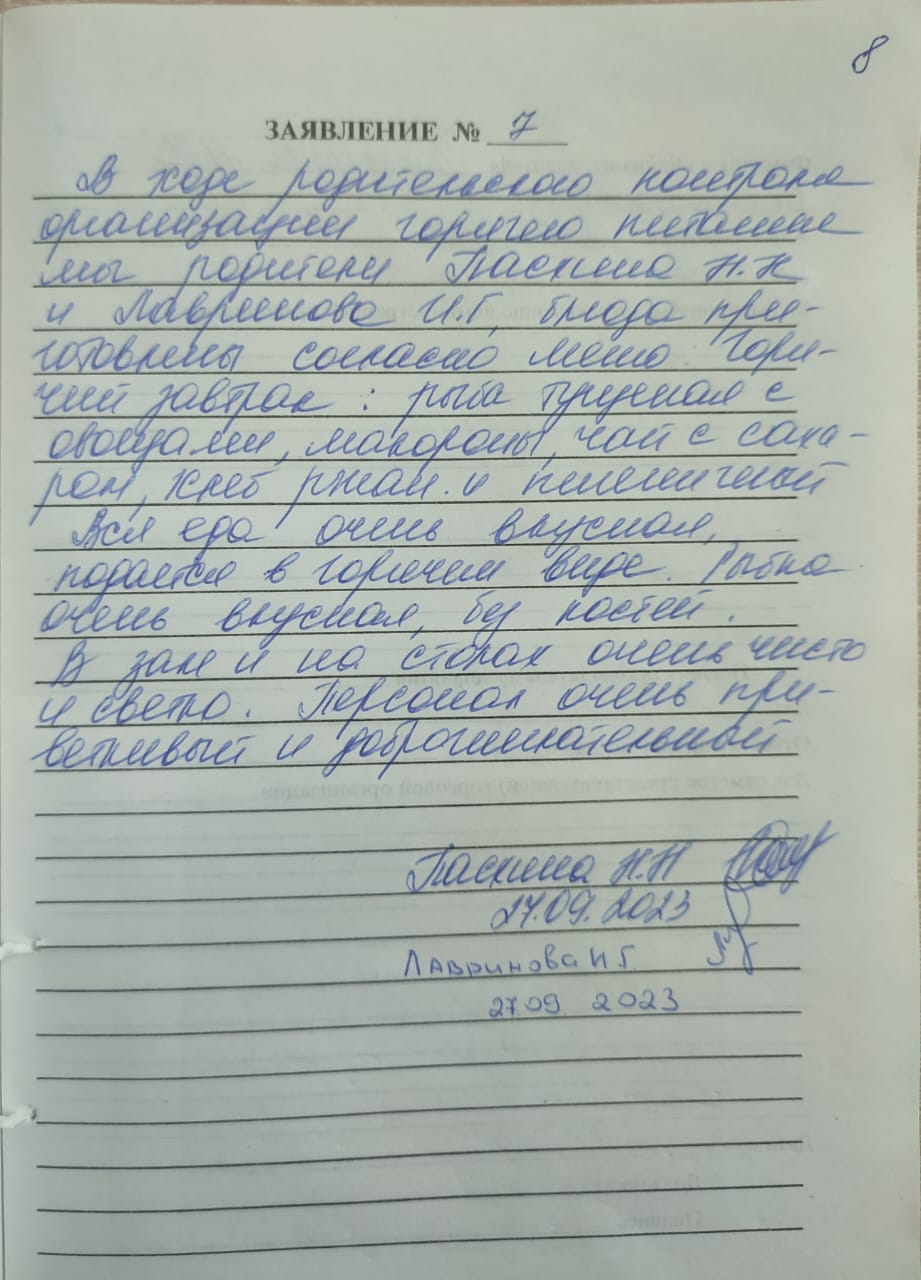 8
ЗАЯВЛЕНИЕ № 7
В ходе родительского контроля
организации горячего питания
мы родители Паскина Н.Н
и Лавринова И.Г, блюда при-
готовлены согласно меню. Горя-
чий завтрак: рыба тушеная с
овощами, макароны, чай с саха-
ром, хлеб ржан. и пшеничный
Вся еда очень вкусная,
подается в горячем виде. Рыбка
очень вкусная, без костей.
В зале и на столах очень чисто
и светло. Персонал очень при-
ветливый и доброжелательный
Паскина Н.Н
27.09.2023
Лавринова И.Г.
27.09 2023